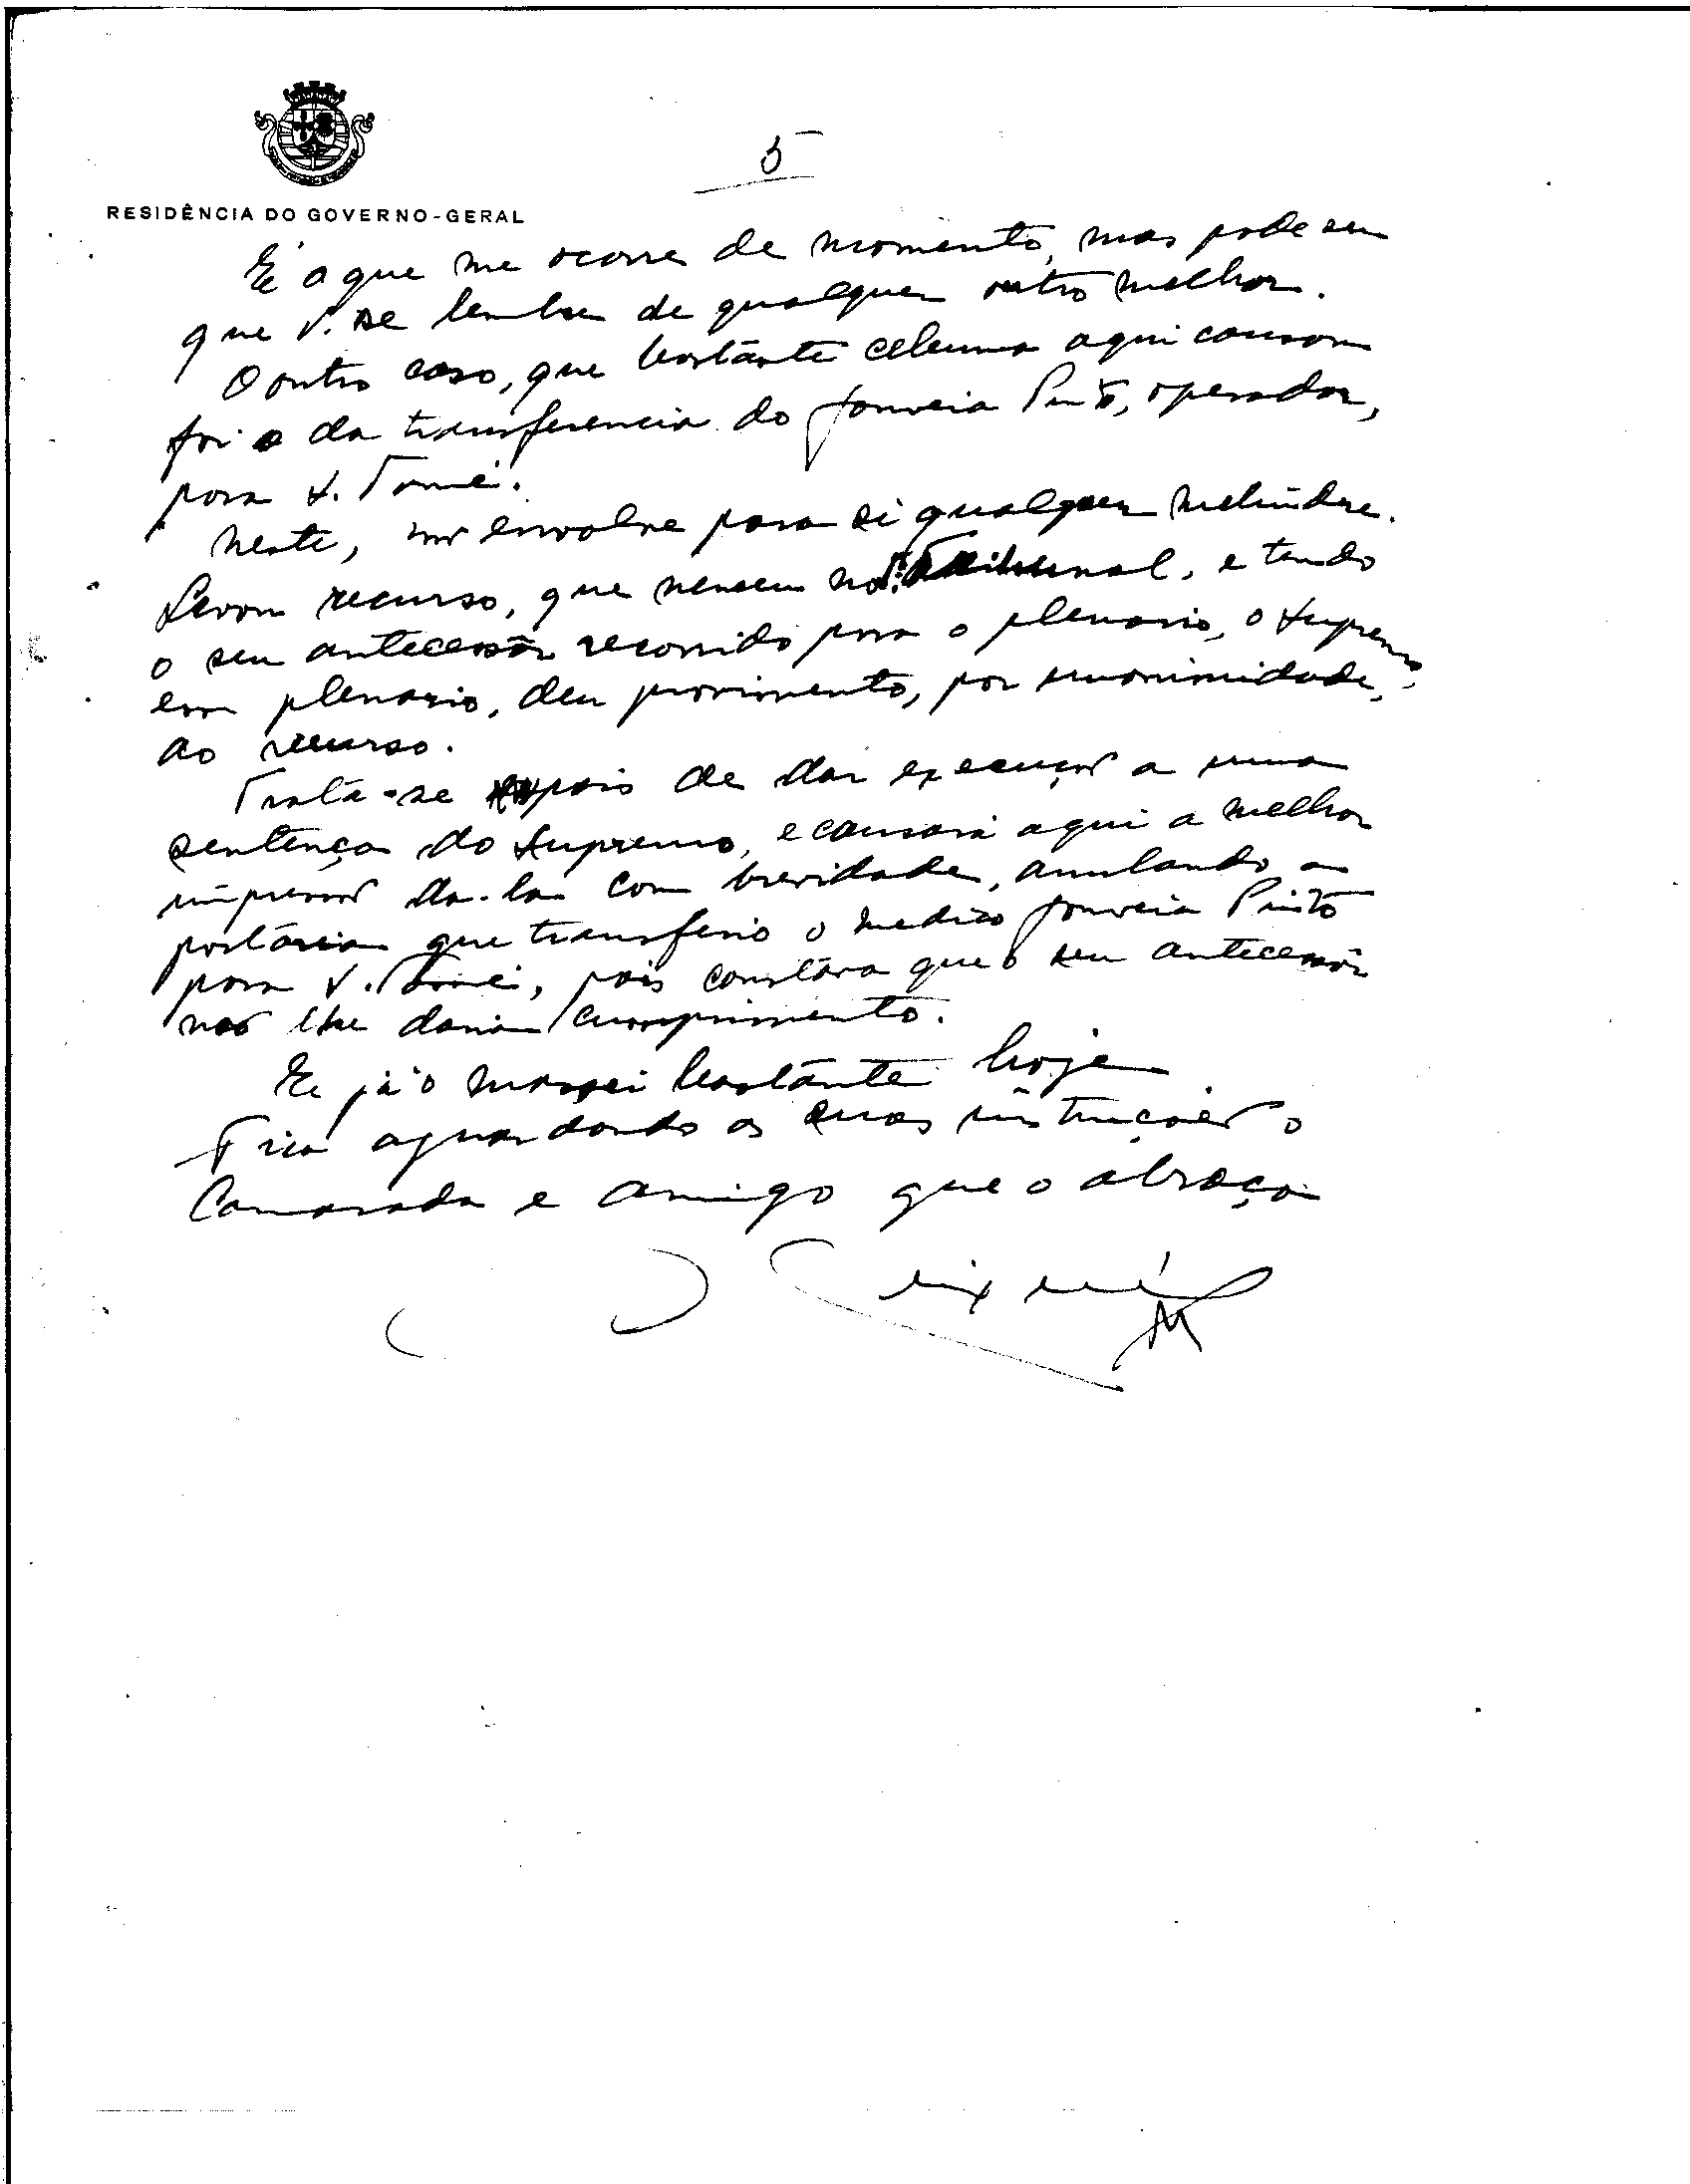 5
RESIDÊNCIA DO GOVERNO-GERAL
É o que me ocorre de momento, mas pode ser
que V. se lembre de qualquer outro melhor.
O outro caso, que bastante celeuma aqui causou
foi o da transferencia do Gouveia Pinto, operador,
para S. Tomé.
Neste, não envolve para si qualquer melindre.
Levou recurso, que venceu no Tribunal, e tendo
o seu antecessôr recorrido para o plenario, o Supremo,
em plenario, deu provimento, por unanimidade,
ao recurso.
Trata-se pois de dar execução a uma
sentença do Supremo, e causará aqui a melhor
impressão da-la com brevidade, anulando a
portaria que transferio o medico Gouveia Pinto
para S. Tomé, pois constára que o seu antecessôr
não lhe daria cumprimento.
E já o massei bastante hoje.
Fica aguardando as suas instruções o
Camarada e amigo que o abraça